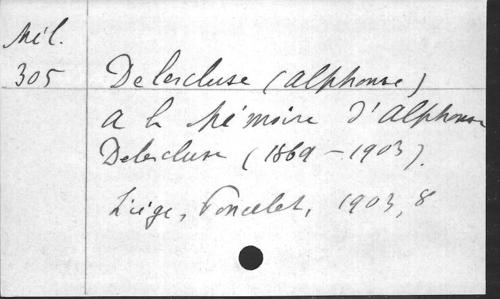 Mél.
305 Delescluse (Alphonse)
A la Mémoire d'Alphonse
Delescluse (1869-1903).
Liège, Poncelet, 1903, 8